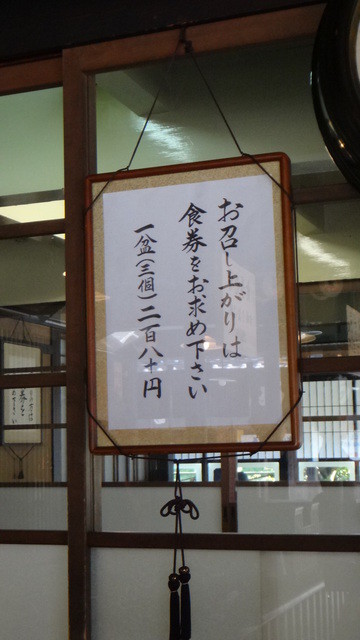 お召し上がりは
食券をお求め下さい
一盆(三個)二百八十円